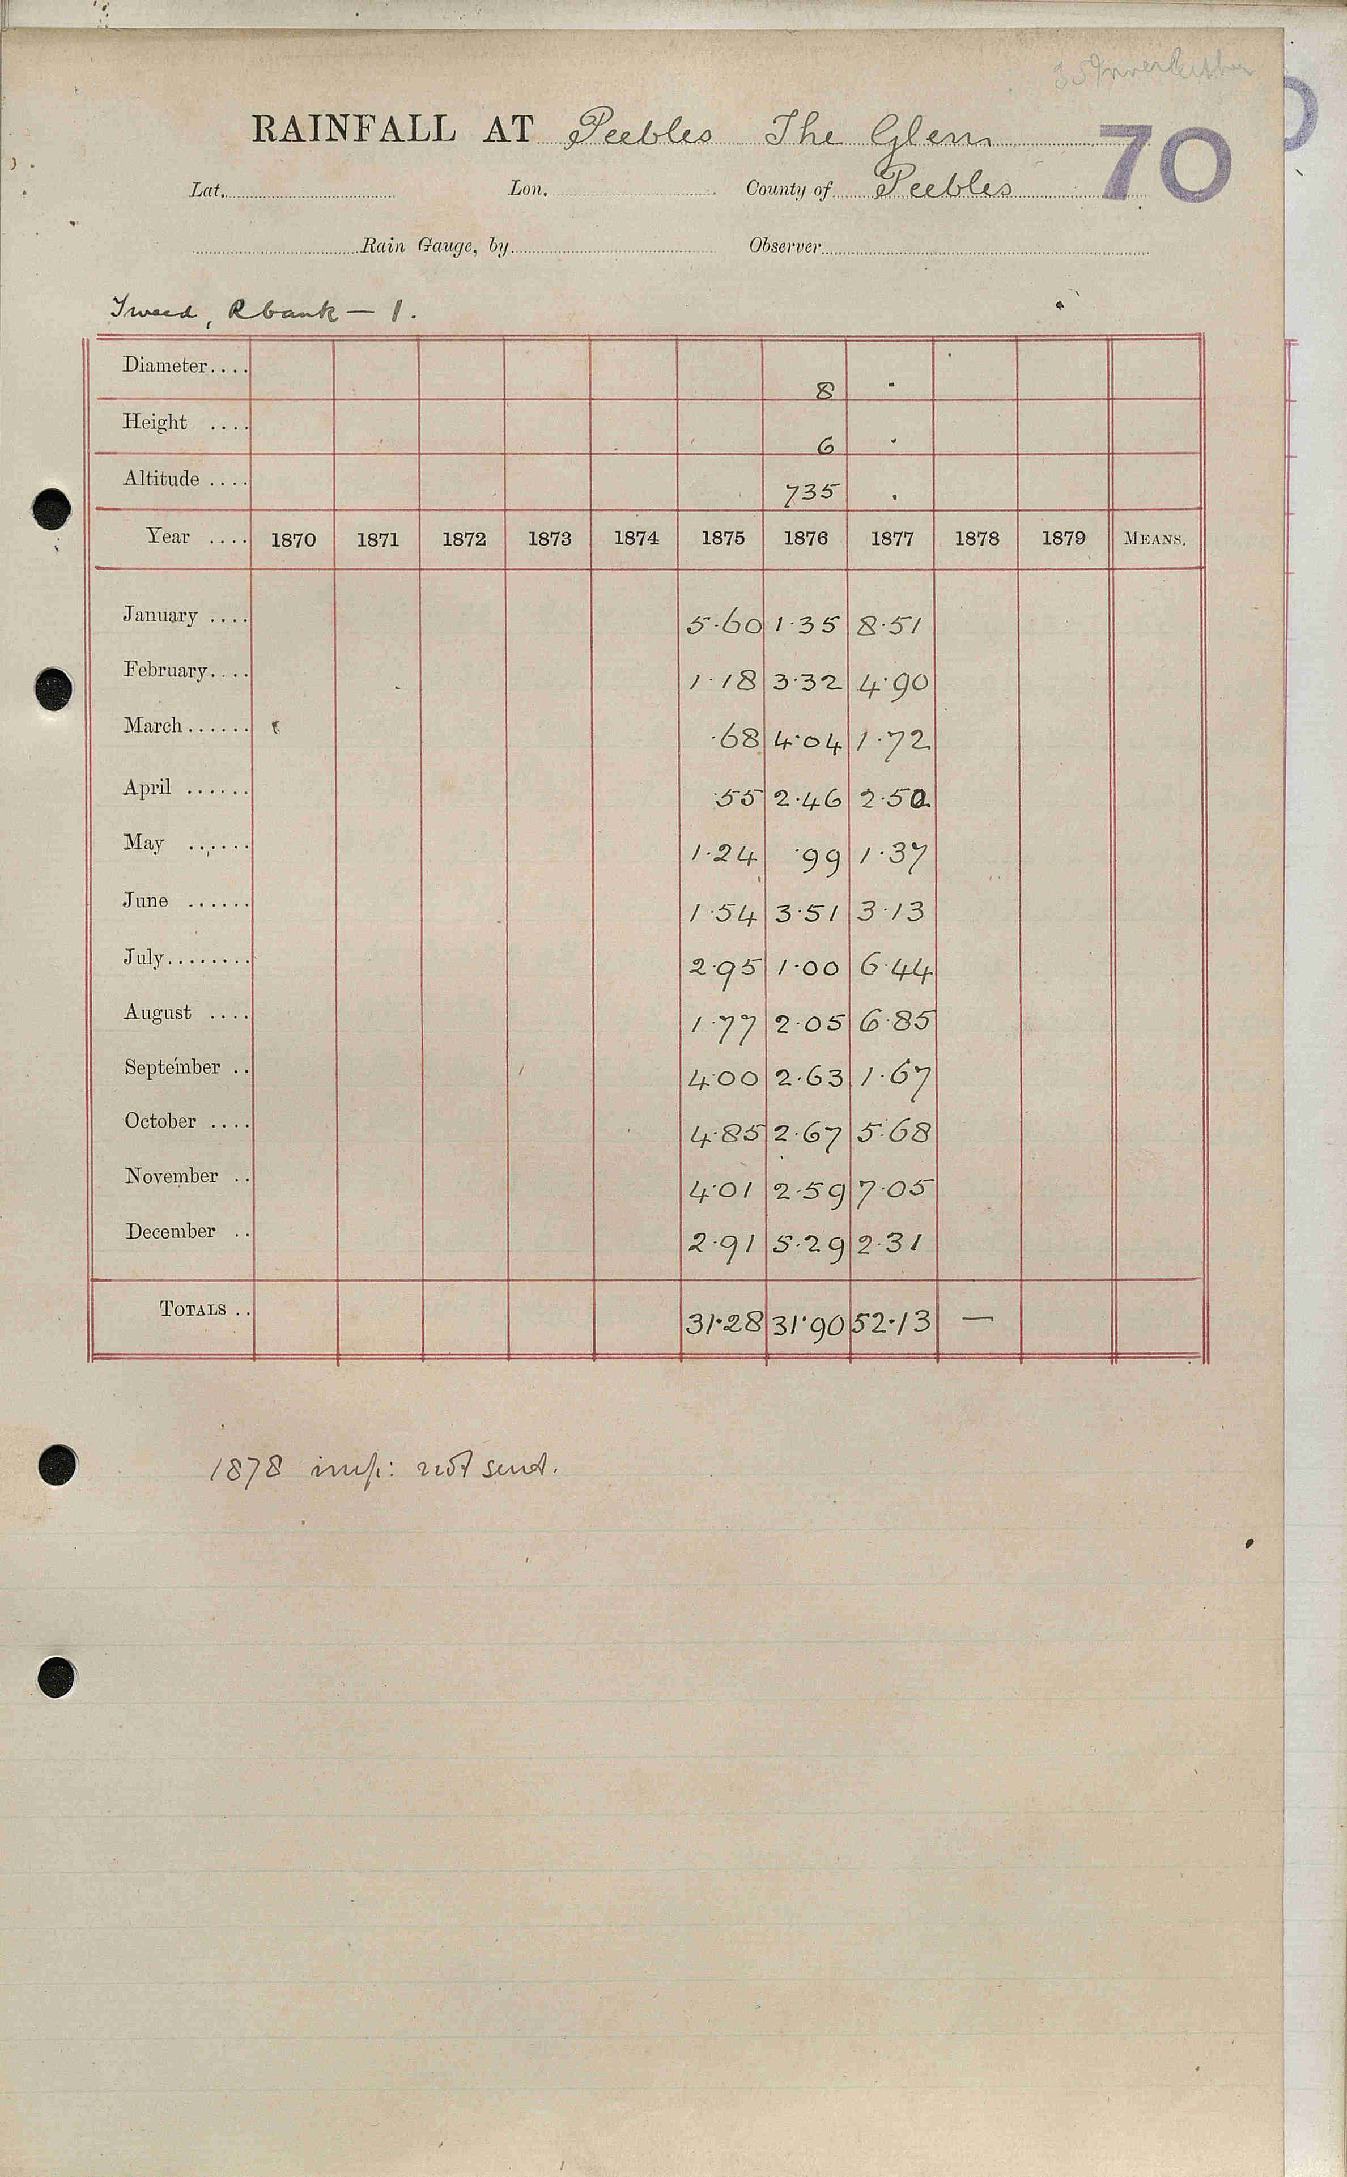 RAINFALL AT Peebles The Glen
70
Lat. Lon. County of Peebles
Rain Gauge, by Observer
Tweed, R bank — 1.
Diameter.... 8 "
Height .... 6 "
Altitude .... 735 "
Year .... 1870 1871 1872 1873 1874 1875 1876 1877 1878 1879 MEANS.
January .... 5.60 1.35 8.51
February.... 1.18 3.32 4.90
March...... .68 4.04 1.72
April ...... .55 2.46 2.50
May ...... 1.24 .99 1.37
June ...... 1.54 3.51 3.13
July........ 2.95 1.00 6.44
August .... 1.77 2.05 6.85
September .. 4.00 2.63 1.67
October .... 4.85 2.67 5.68
November .. 4.01 2.59 7.05
December .. 2.91 5.29 2.31
TOTALS .. 31.28 31.90 52.13 —
1878 imp: not send.